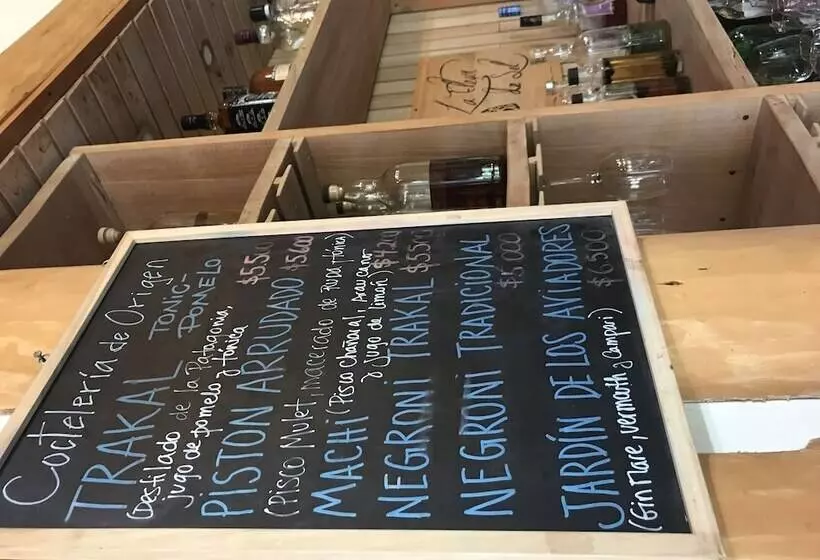 La Flor
de Sal
Coctelería de Origen
TRAKAL TONIC-
POMELO $5500
(Destilado de la Patagonia,
jugo de pomelo y tónica
PISTON ARRUDADO $5600
(Pisco Mulet, macerado de ruda y tónica)
MACHI (Pisco Chañaral, Araucano
y jugo de limón)
NEGRONI TRAKAL $5500
NEGRONI TRADICIONAL
$5000
JARDÍN DE LOS AVIADORES
$6500
(Gin Mare, vermouth y Campari)